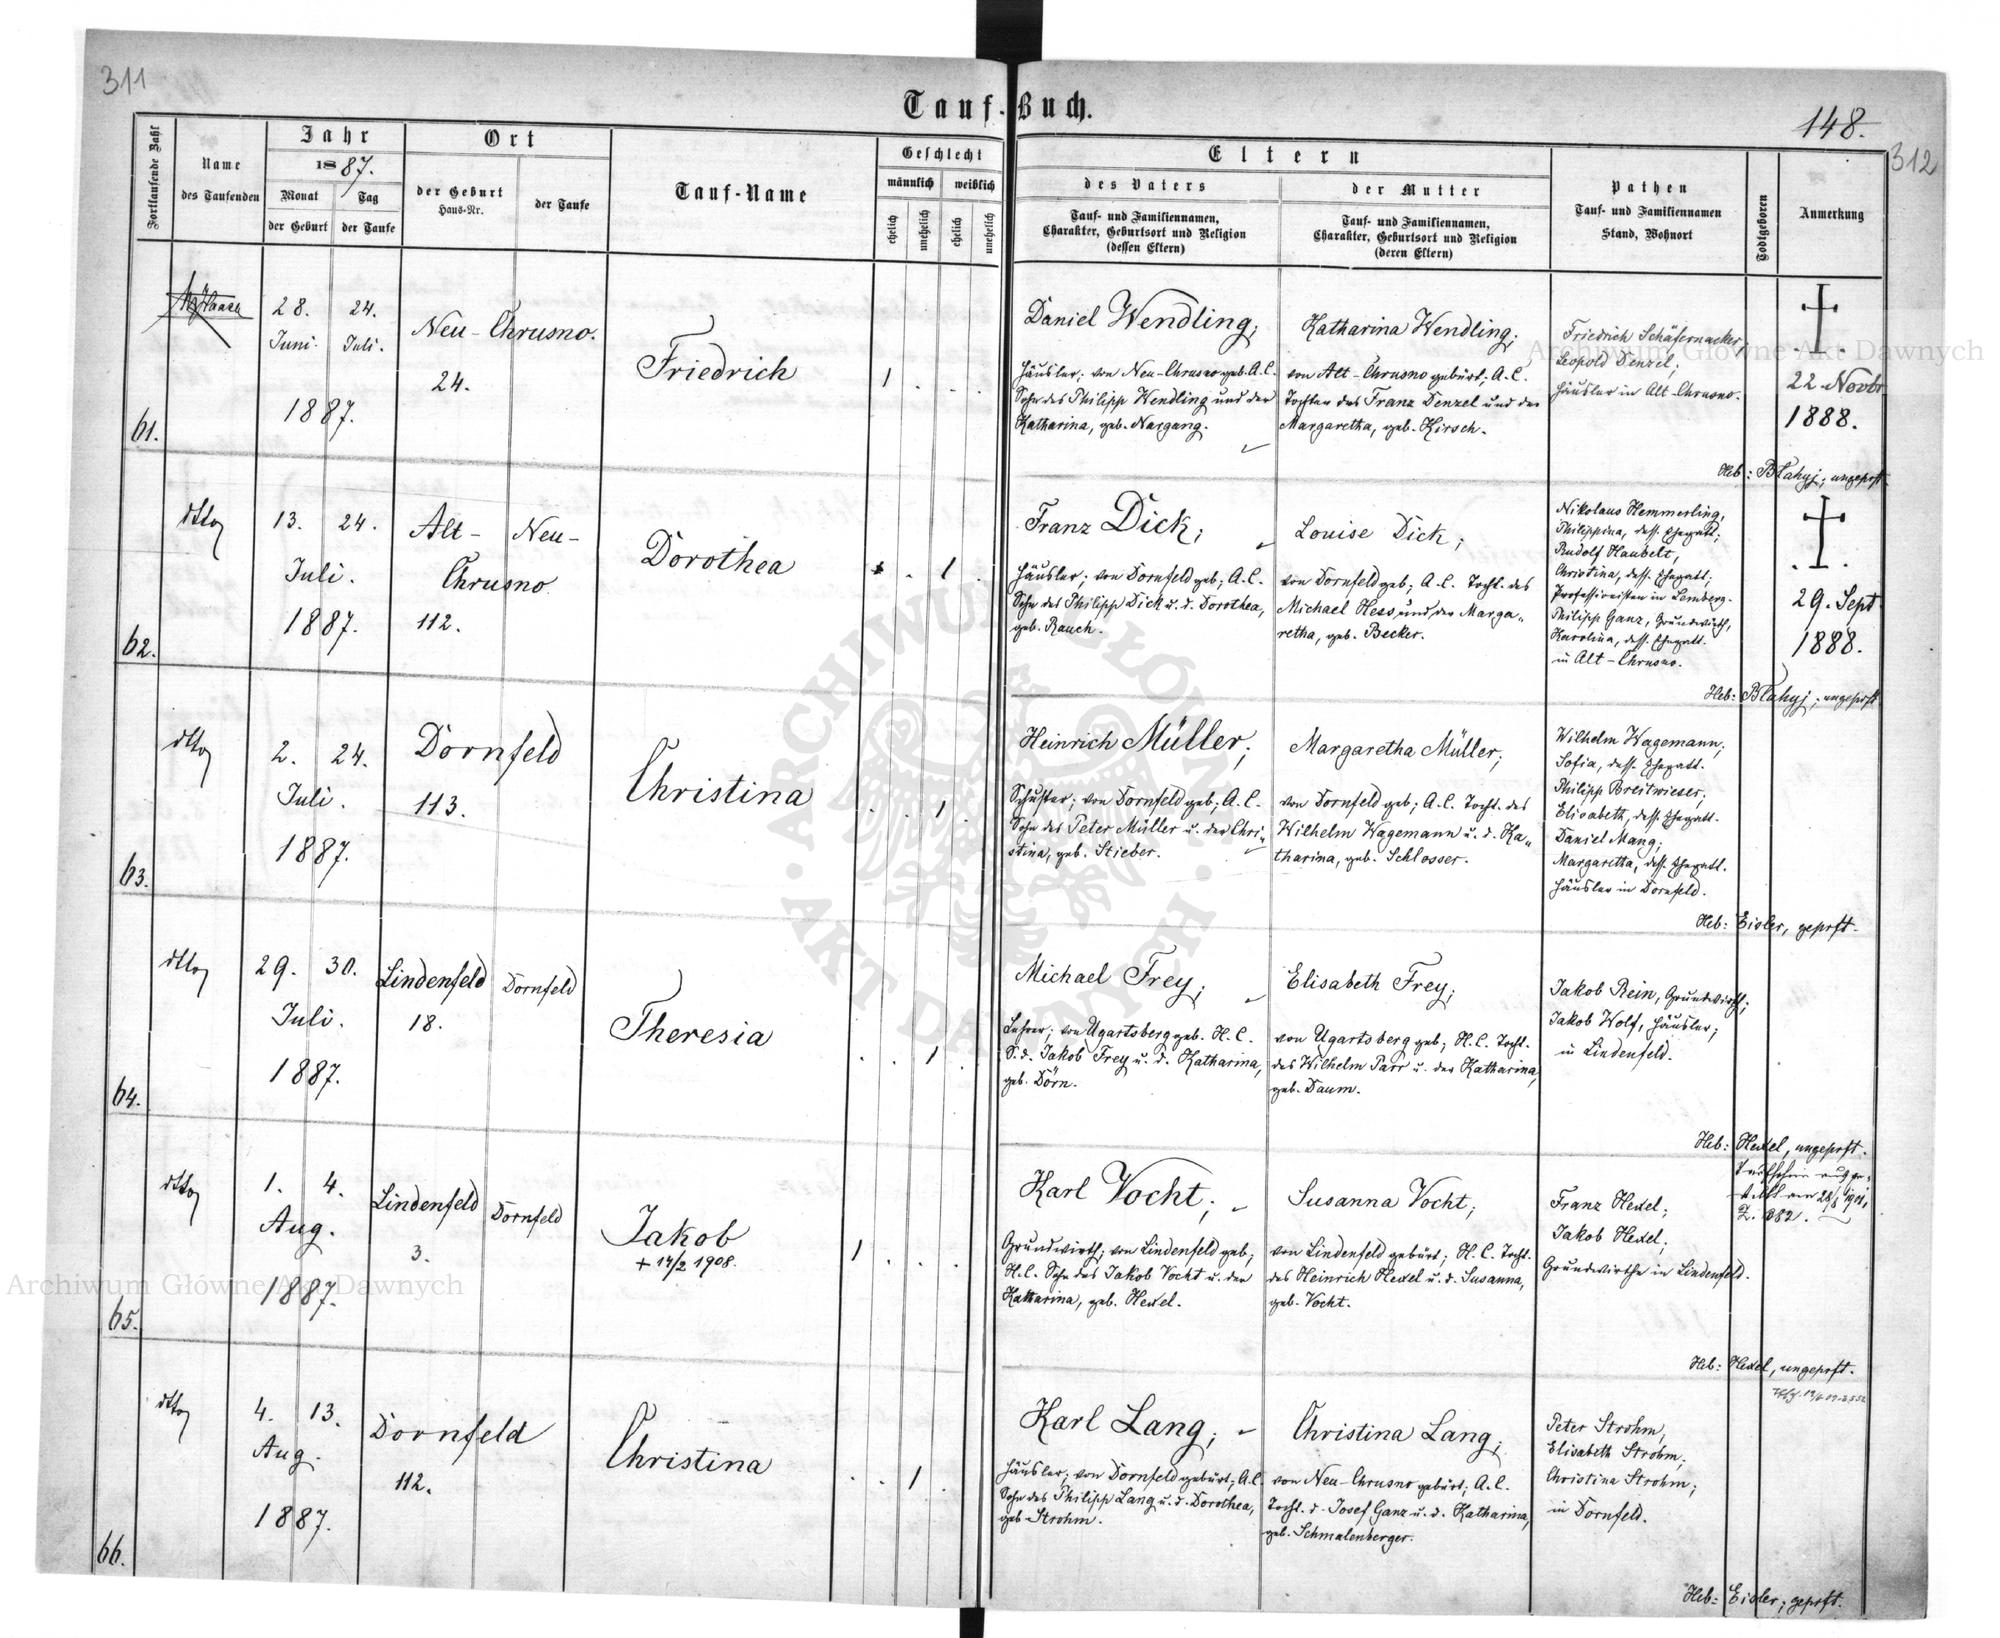 311
Tauf-Buch.
148.
312
Fortlaufende Zahl
Name
des Taufenden
Jahr
1887.
Monat
Tag
der Geburt
der Taufe
Ort
der Geburt
Haus-Nr.
der Taufe
Tauf-Name
Geschlecht
männlich
weiblich
ehelich
unehelich
ehelich
unehelich
Eltern
des Vaters
Tauf- und Familiennamen,
Charakter, Geburtsort und Religion
(dessen Eltern)
der Mutter
Tauf- und Familiennamen,
Charakter, Geburtsort und Religion
(deren Eltern)
Pathen
Tauf- und Familiennamen
Stand, Wohnort
Todtgeboren
Anmerkung
61.
28. 24.
Juni. Juli.
1887.
Neu-Chrusno.
24.
Friedrich
1 . . .
Daniel Wendling;
Häusler; von Neu-Chrusno geb. A.C.
Sohn des Philipp Wendling und der
Katharina, geb. Nargang.
Katharina Wendling;
von Alt-Chrusno gebürt; A.C.
Tochter des Franz Denzel und der
Margaretha, geb. Hirsch.
Friedrich Schäfernacker,
Leopold Denzel;
Häusler in Alt-Chrusno.
22. Novbr
1888.
Heb: Błahyj; ungeprft.
62.
dtto
13. 24.
Juli.
1887.
Alt- Neu-
Chrusno.
112.
Dorothea
. 1 .
Franz Dick;
Häusler; von Dornfeld geb; A.C.
Sohn des Philipp Dick u. d. Dorothea,
geb. Rauch.
Louise Dick;
von Dornfeld geb; A.C. Tocht. des
Michael Hess und der Marga„
retha, geb. Becker.
Nikolaus Hemmerling,
Philippina, dess. Ehegatt;
Rudolf Haubelt,
Christina, dess. Ehegatt;
Professionisten in Lemberg.
Philipp Ganz, Grundwirth,
Karolina, dess. Ehegatt.
in Alt-Chrusno.
29. Sept
1888.
Heb: Błahyj; ungeprft
63.
dtto
2. 24.
Juli.
1887.
Dornfeld
113.
Christina
. . 1 .
Heinrich Müller;
Schuster; von Dornfeld geb; A.C.
Sohn des Peter Müller u. der Chri„
stina, geb. Stieber.
Margaretha Müller;
von Dornfeld geb; A.C. Tocht. des
Wilhelm Wagemann u. d. Ka„
tharina, geb. Schlosser.
Wilhelm Wagemann;
Sofia, dess. Ehegatt.
Philipp Breitwieser;
Elisabeth, dess. Ehegatt.
Daniel Mang;
Margaretha, dess. Ehegatt.
Häusler in Dornfeld.
Heb: Eisler, geprft.
64.
dtto
29. 30.
Juli.
1887.
Lindenfeld Dornfeld
18.
Theresia
. . 1 .
Michael Frey;
Lehrer; von Ugartsberg geb. H.C.
S. d. Jakob Frey u. d. Katharina,
geb. Dörn.
Elisabeth Frey;
von Ugartsberg geb; H.C. Tocht.
des Wilhelm Parr u. der Katharina,
geb. Daum.
Jakob Rein, Grundwirth;
Jakob Wolf, Häusler;
in Lindenfeld.
Heb: Hexel, ungeprft.
65.
dtto
1. 4.
Aug.
1887.
Lindenfeld Dornfeld
3.
Jakob
+ 14/2 1908.
1 . . .
Karl Vocht;
Grundwirth; von Lindenfeld geb;
H.C. Sohn des Jakob Vocht u. der
Katharina, geb. Hexel.
Susanna Vocht;
von Lindenfeld gebürt; H.C. Tocht.
des Heinrich Hexel u. d. Susanna,
geb. Vocht.
Franz Hexel;
Jakob Hexel;
Grundwirthe in Lindenfeld.
Heb: Hexel, ungeprft.
66.
dtto
4. 13.
Aug.
1887.
Dornfeld
112.
Christina
. . 1 .
Karl Lang;
Häusler; von Dornfeld gebürt; A.C.
Sohn des Philipp Lang u. d. Dorothea,
geb Strohm.
Christina Lang;
von Neu-Chrusno gebürt; A.C.
Tocht. d. Josef Ganz u. d. Katharina,
geb. Schmalenberger.
Peter Strohm,
Elisabeth Strohm;
Christina Strohm;
in Dornfeld.
Heb: Eisler; geprft.
Archiwum Główne Akt Dawnych
Archiwum Główne Akt Dawnych
ARCHIWUM GŁÓWNE · AKT DAWNYCH ·